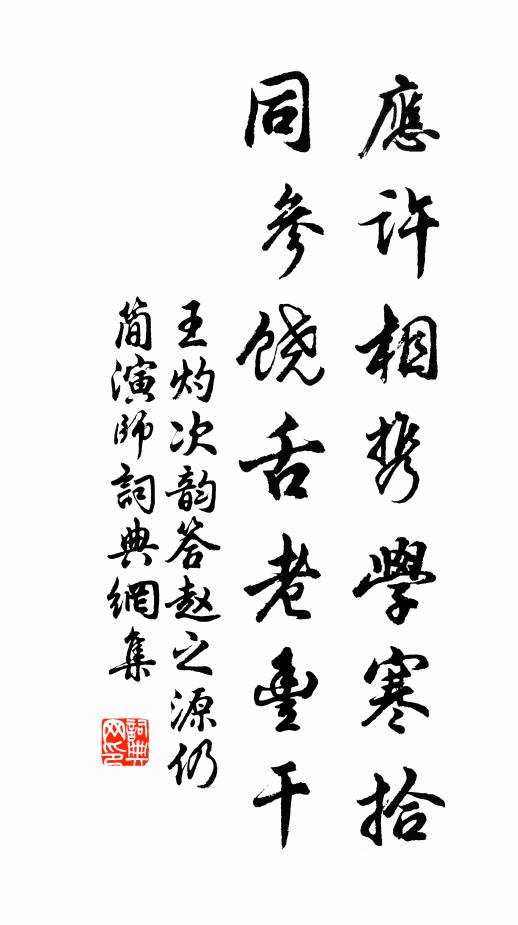 應許相携學寒拾
同參饶舌老豊干
王灼次韵答赵之源仍
简演師詞典網集
詞典網印